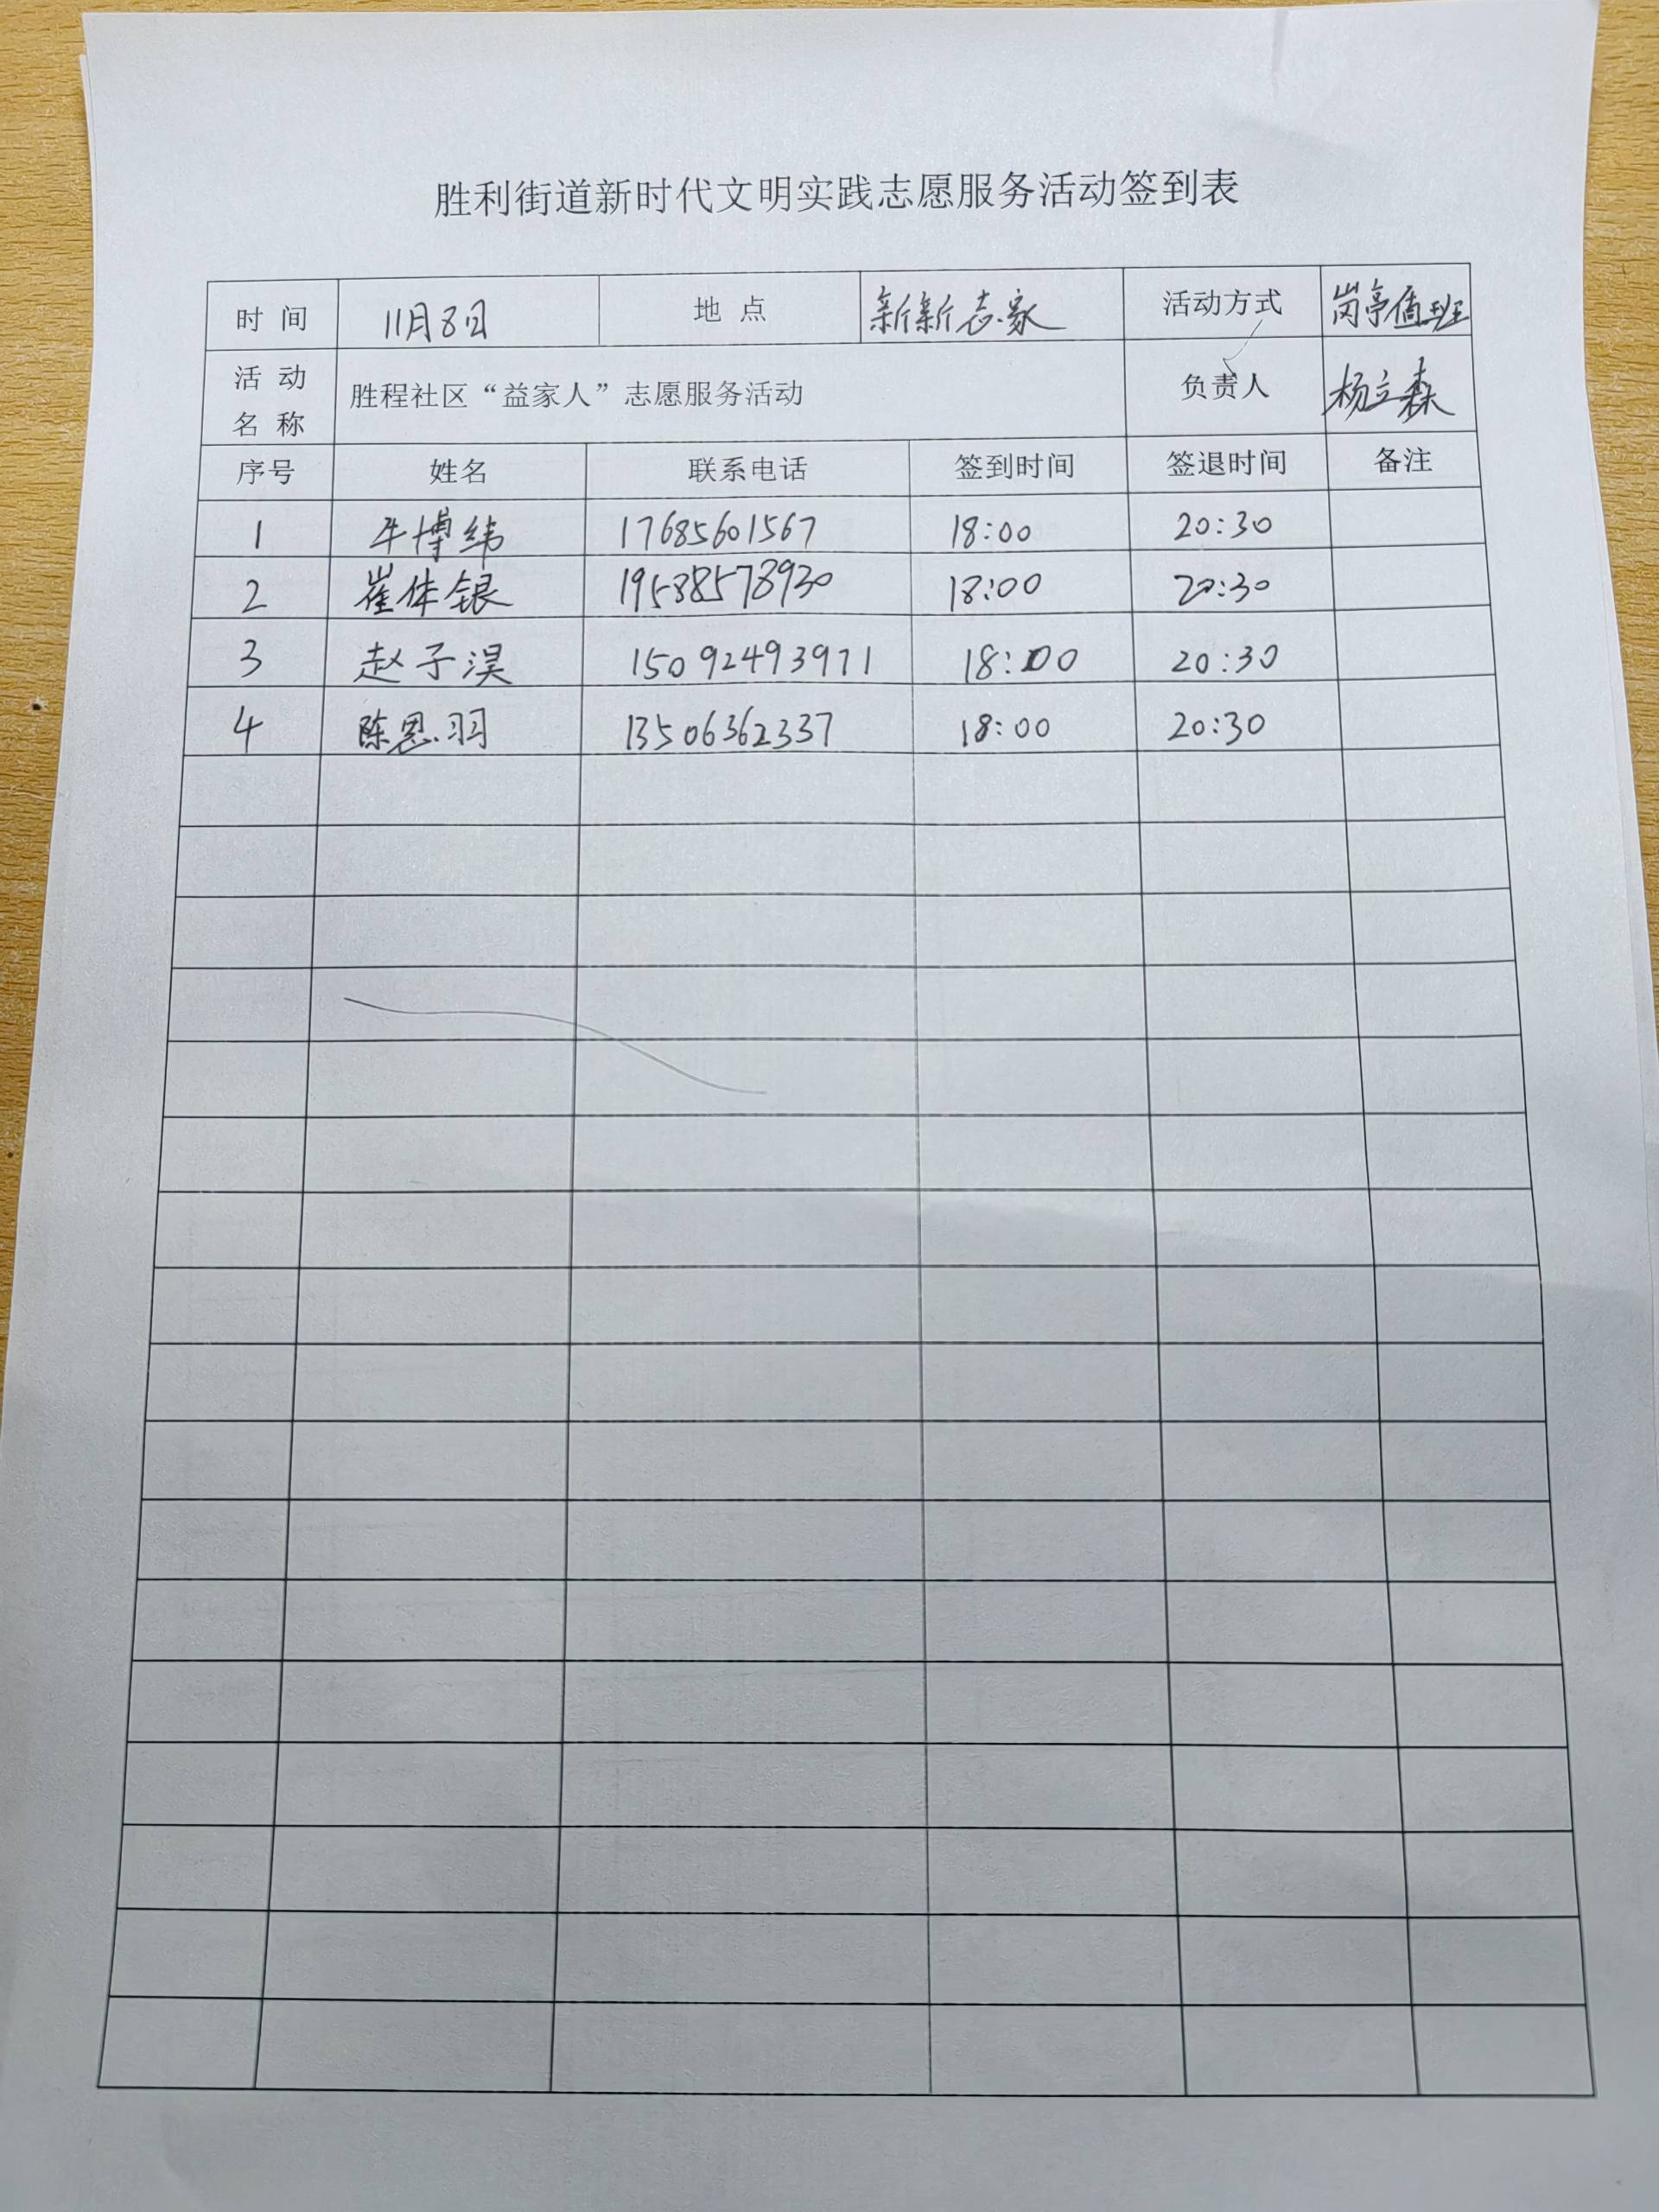 胜利街道新时代文明实践志愿服务活动签到表
时 间 11月8日 地 点 新新志家 活动方式 岗亭值班
活 动 名 称 胜程社区“益家人”志愿服务活动 负责人 杨立森
序号 姓名 联系电话 签到时间 签退时间 备注
1 牛博纬 17685601567 18:00 20:30
2 崔体银 19588578930 18:00 20:30
3 赵子淏 15092493971 18:00 20:30
4 陈恩羽 13506362337 18:00 20:30